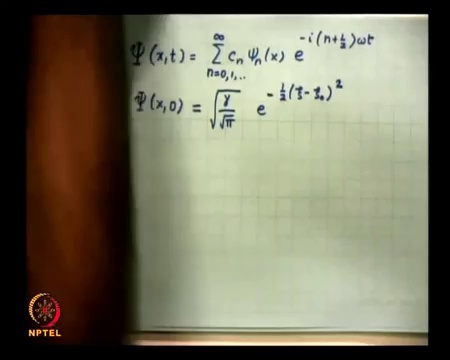 Ψ(x,t) = ∑_{n=0,1,..}^{∞} c_n ψ_n(x) e^{-i(n+½)ωt}
Ψ(x,0) = √(γ/√π) e^{-½(ξ-ξ_0)^2}
NPTEL